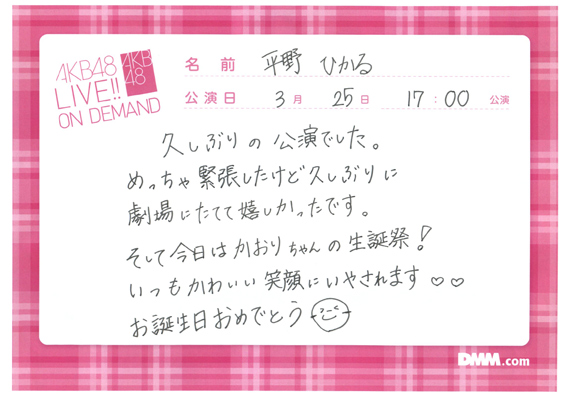 AKB48
LIVE!!
ON DEMAND
AKB
48
名前 平野 ひかる
公演日 3月 25日 17:00 公演
久しぶりの公演でした。
めっちゃ緊張したけど久しぶりに
劇場にたてて嬉しかったです。
そして今日はかおりちゃんの生誕祭!
いつもかわいい笑顔にいやされます♡♡
お誕生日おめでとう
DMM.com